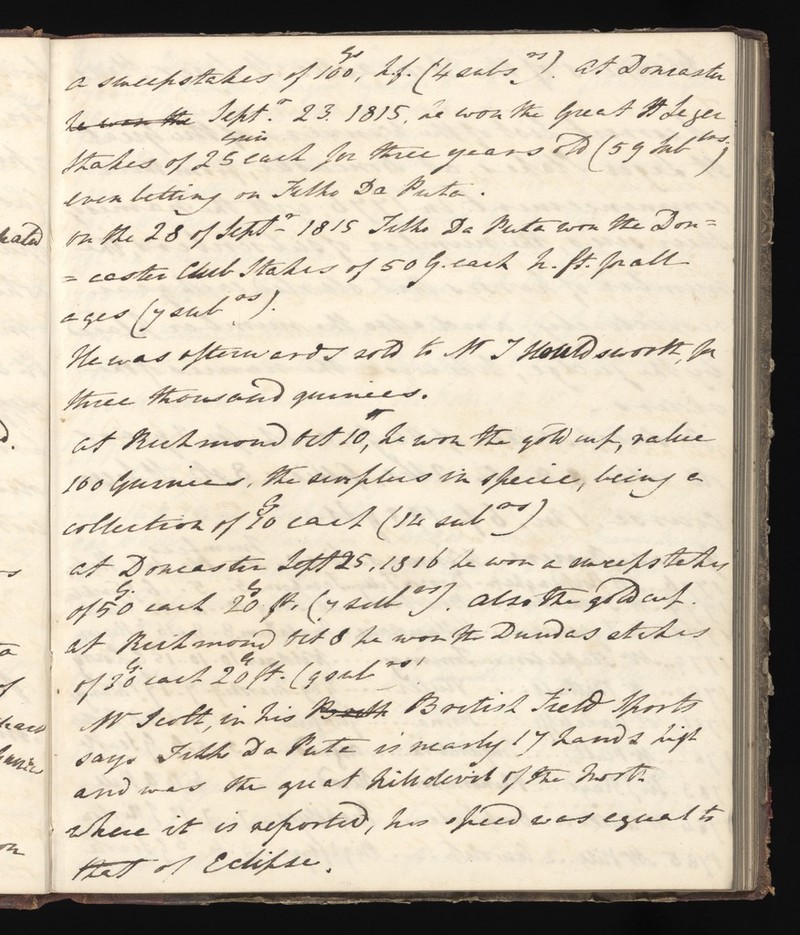 a sweepstakes of 100 gs, h.f. (4 subs rs). at Doncaster
he won the Septr. 23. 1815, he won the Great St Leger
Stakes of 25 guin each for three years old (59 sub bers.)
even betting on Filho Da Puta.
on the 28 of Septr - 1815 Filho Da Puta won the Don=
=caster Club Stakes of 50 G. each h. ft. for all
ages (7 sub rs).
He was afterwards sold to Mr T Houldsworth, for
three thousand guinees.
at Richmond Oct 10th, he won the gold cup, value
100 Guinees, the surplus in specie, being a
collection of 10 G each (14 sub rs)
at Doncaster Sept 25, 1816 he won a sweepstakes
of 50 G. each 20 G ft. (7 sub rs). also the gold cup.
at Richmond Oct 8 he won the Dundas stakes
of 30 G. each 20 G ft. (9 sub rs)
Mr Scott, in his British Field Sports
says Filho Da Puta is nearly 17 hands high
and was the great kill devil of the North
where it is reported, his speed was equal to
that of Eclipse.